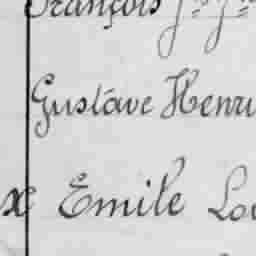 François
Gustave Henri
x Emile